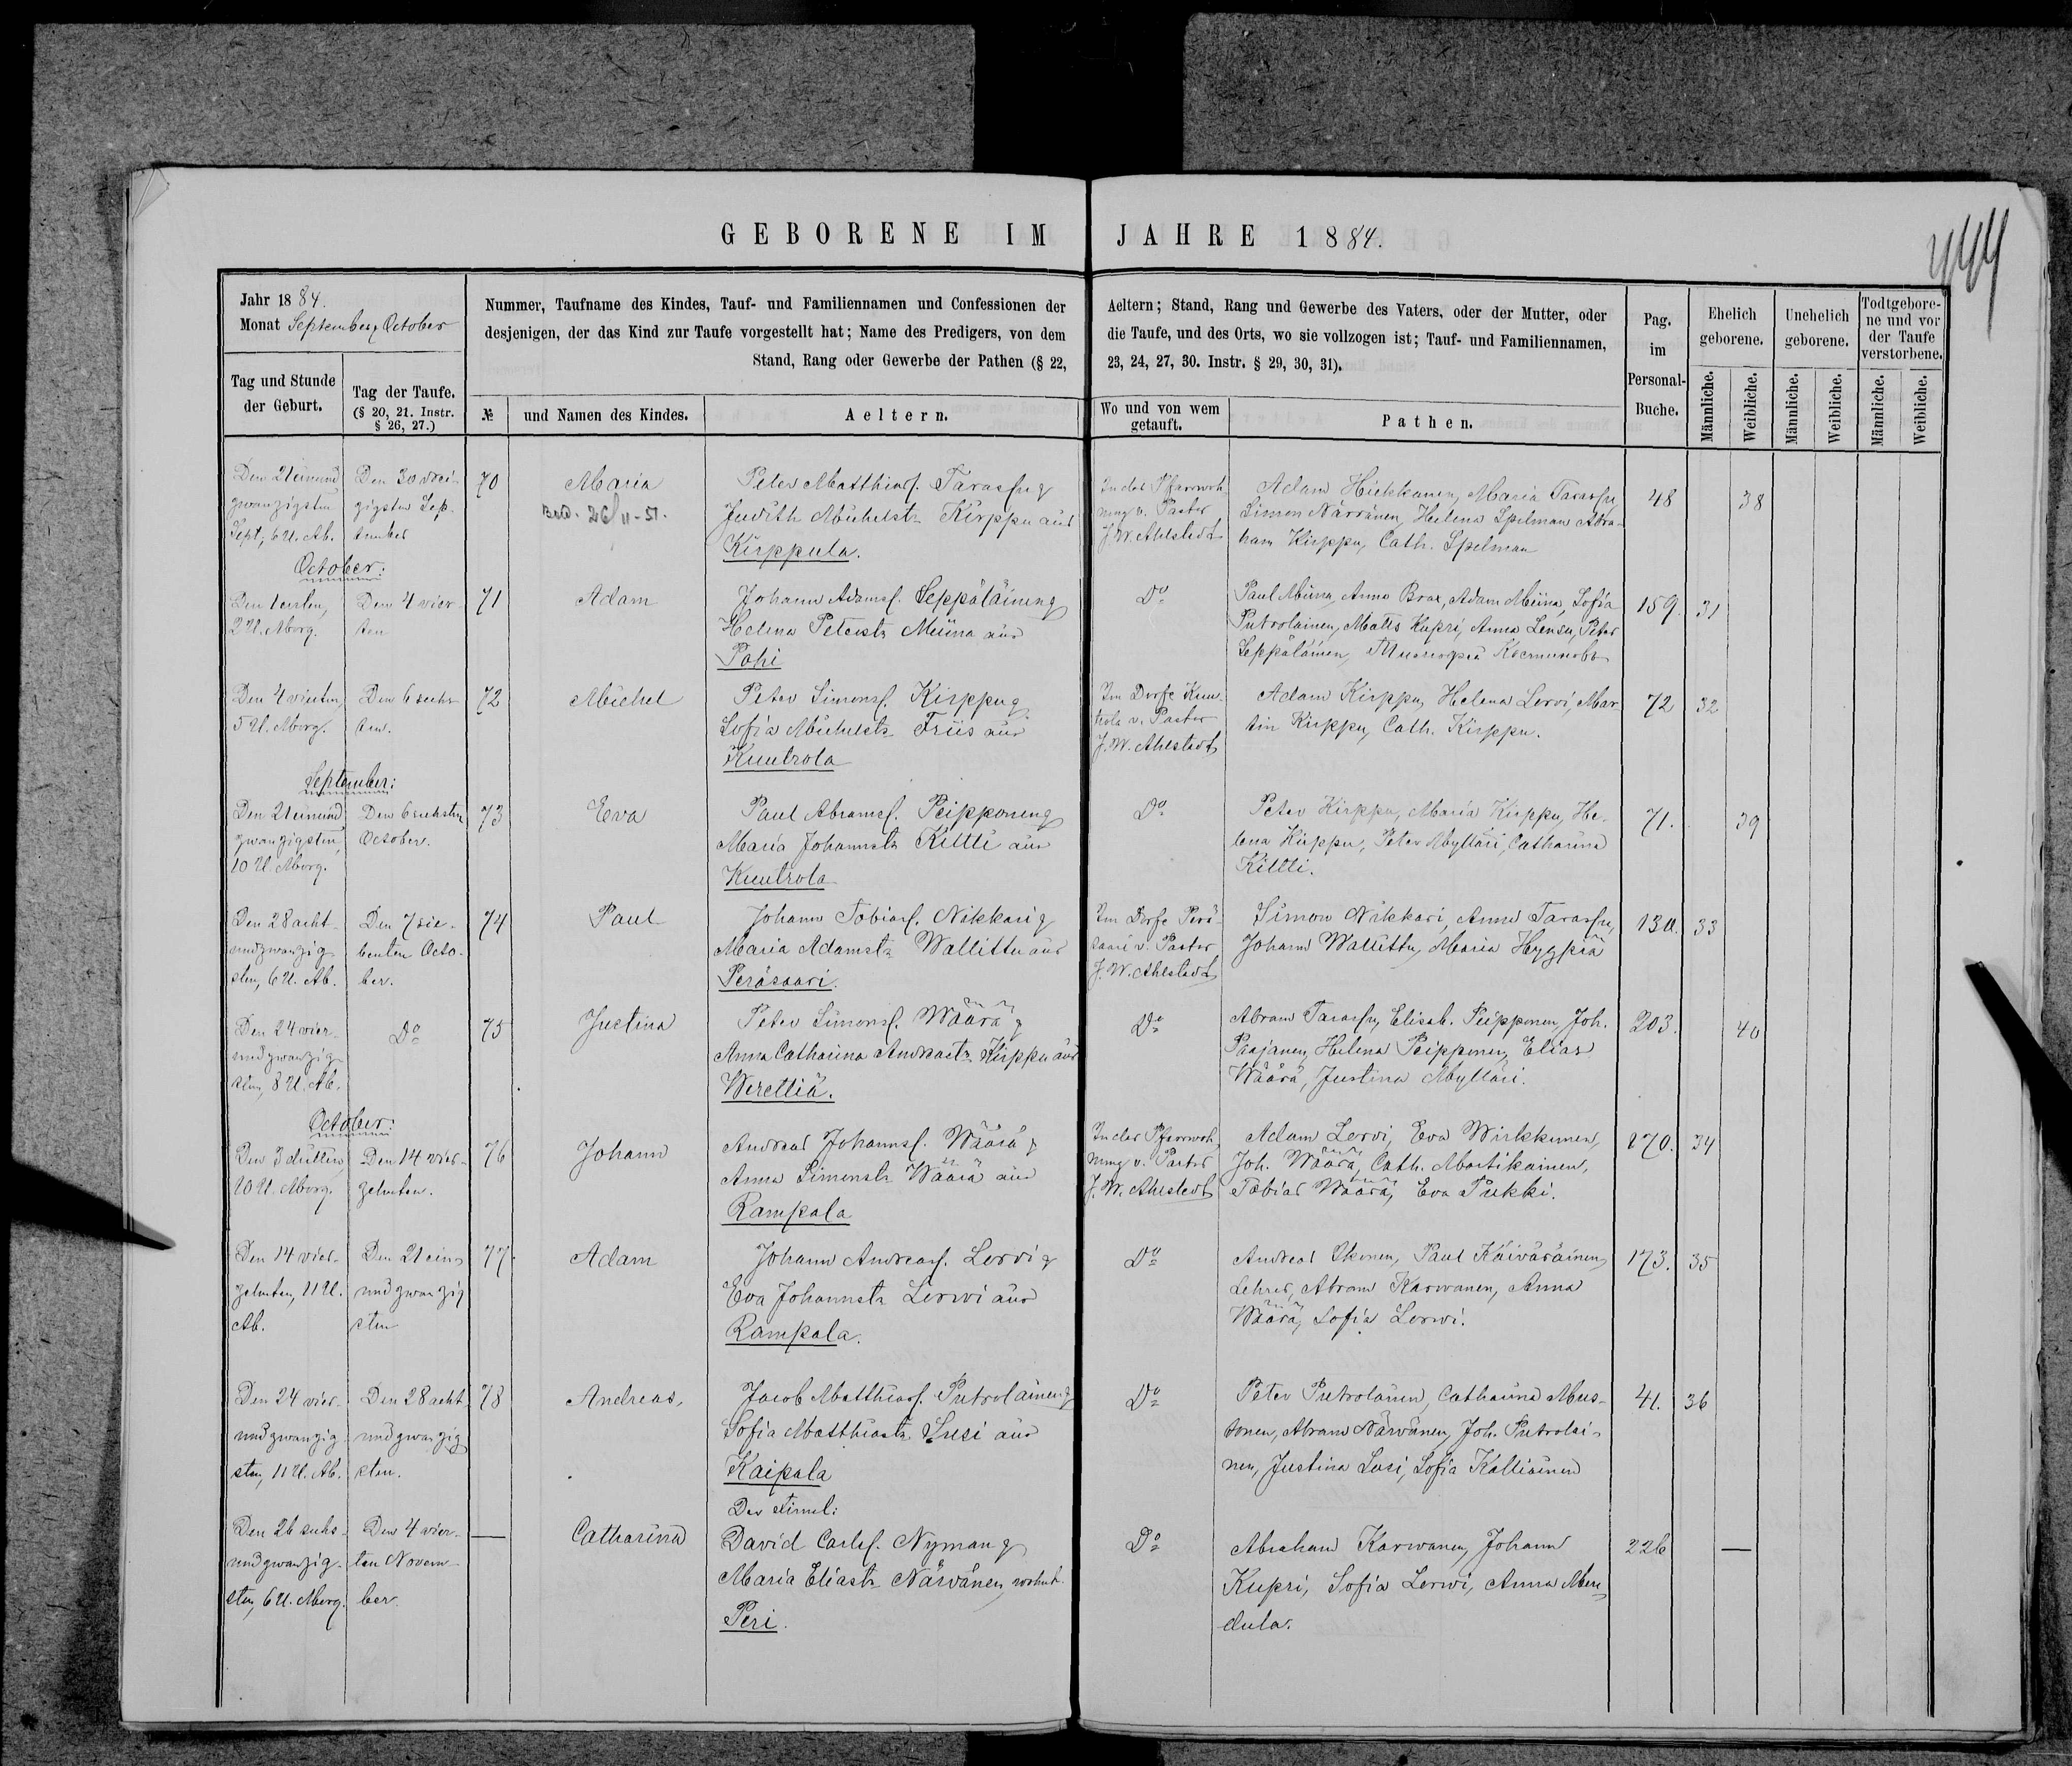 GEBORENE IM JAHRE 1884.
444
Jahr 1884.
Monat September, October
Nummer, Taufname des Kindes, Tauf- und Familiennamen und Confessionen der
desjenigen, der das Kind zur Taufe vorgestellt hat; Name des Predigers, von dem
Stand, Rang oder Gewerbe der Pathen (§ 22,
Aeltern; Stand, Rang und Gewerbe des Vaters, oder der Mutter, oder
die Taufe, und des Orts, wo sie vollzogen ist; Tauf- und Familiennamen,
23, 24, 27, 30. Instr. § 29, 30, 31).
Pag.
im
Personal-
Buche.
Ehelich
geborene.
Unehelich
geborene.
Todtgebore-
ne und vor
der Taufe
verstorbene.
Tag und Stunde
der Geburt.
Tag der Taufe.
(§ 20, 21. Instr.
§ 26, 27.)
№
und Namen des Kindes.
Aeltern.
Wo und von wem
getauft.
Pathen.
Männliche.
Weibliche.
Männliche.
Weibliche.
Männliche.
Weibliche.
Den 21 einund
zwanzigsten
Sept; 6 U. Ab.
Den 30 drei-
zigsten Sep-
tember
70
Maria
26/11-51.
Peter Matthiass. Tarassu &
Judith Michelstr. Kirppu aus
Kirppula.
In der Pfarrwoh
nung v. Pastor
J. W. Ahlstedt
Adam Hiekkanen, Maria Tarassu,
Simon Närvänen, Helena Spelman Abra-
ham Kirppu, Cath. Spelman
48
38
October:
Den 1 ersten,
2 U. Morg.
Den 4 vier-
ten
71
Adam
Johann Adamss. Seppäläinen &
Helena Peterstr. Miina aus
Pohi
Do
Paul Miina, Anna Brax, Adam Miina, Sofia
Putrolainen, Matts Kupri, Anna Lensu, Peter
Seppäläinen,
159.
31
Den 4 vierten,
5 U. Morg.
Den 6 sechs-
ten.
72
Michel
Peter Simonss. Kirppu &
Sofia Michelstr. Friis aus
Kuutrola
Im Dorfe Kuu-
trola v. Pastor
J. W. Ahlstedt
Adam Kirppu, Helena Lervi, Mar-
tin Kirppu, Cath. Kirppu.
72
32
September:
Den 21 einund
zwanzigsten,
10 U. Morg.
Den 6 sechsten
October.
73
Eva
Paul Abramss. Peipponen &
Maria Johannstr. Kiltti aus
Kuutrola
Do
Peter Kirppu, Maria Kirppu, He-
lena Kirppu, Peter Mylläri, Catharina
Kiltti.
71.
39
Den 28 acht-
undzwanzig-
sten, 6 U. Ab.
Den 7 sie-
benten Octo-
ber.
74
Paul
Johann Tobiass. Näkkäri &
Maria Adamstr. Wallittu aus
Peräsaari.
Im Dorfe Perä-
saari v. Pastor
J. W. Ahlstedt
Simon Näkkäri, Anna Tarassu,
Johann Wallittu, Maria Hyypiä
130.
33
Den 24 vier-
undzwanzig-
sten, 8 U. Ab.
Do
75
Justina
Peter Simonss. Wäärä &
Anna Catharina Andreastr. Kirppu aus
Werettiä.
Do
Abram Tarassu, Elisab. Peipponen, Joh.
Paajanen, Helena Peipponen, Elias
Wäärä, Justina Mylläri.
203.
40
October:
Den 3 dritten,
10 U. Morg.
Den 14 vier-
zehnten.
76
Johann
Andreas Johannss. Wäärä &
Anna Simonstr. Wäärä aus
Rampala
In der Pfarrwoh
nung v. Pastor
J. W. Ahlstedt
Adam Lervi, Eva Wirkkunen,
Joh. Wäärä, Cath. Martikainen,
Tobias Wäärä, Eva Pukki.
170.
34
Den 14 vier-
zehnten, 11 U.
Ab.
Den 21 ein-
undzwanzig
sten
77.
Adam
Johann Andreass. Lervi &
Eva Johannstr. Lerwi aus
Rampala.
Do
Andreas Okonen, Paul Käiväräinen
Lehrer, Abram Karwanen, Anna
Wäärä, Sofia Lerwi.
173.
35
Den 24 vier-
undzwanzig-
sten, 11 U. Ab.
Den 28 acht
undzwanzig
sten.
78
Andreas.
Jacob Matthiass. Putrolainen &
Sofia Matthiastr. Susi aus
Kaipala
Do
Peter Putrolainen, Catharina Mus-
tonen, Abram Närvänen, Joh. Putrolai-
nen, Justina Susi, Sofia Kalliainen
41.
36
Den 26 sechs-
undzwanzig-
sten, 6 U. Morg.
Den 4 vier-
ten Novem-
ber.
—
Catharina
Der
David Carlss. Nyman &
Maria Eliastr. Närvänen, wohnh.
Peri.
Do
Abraham Karwanen, Johann
Kupri, Sofia Lerwi, Anna Men-
dula.
226
—